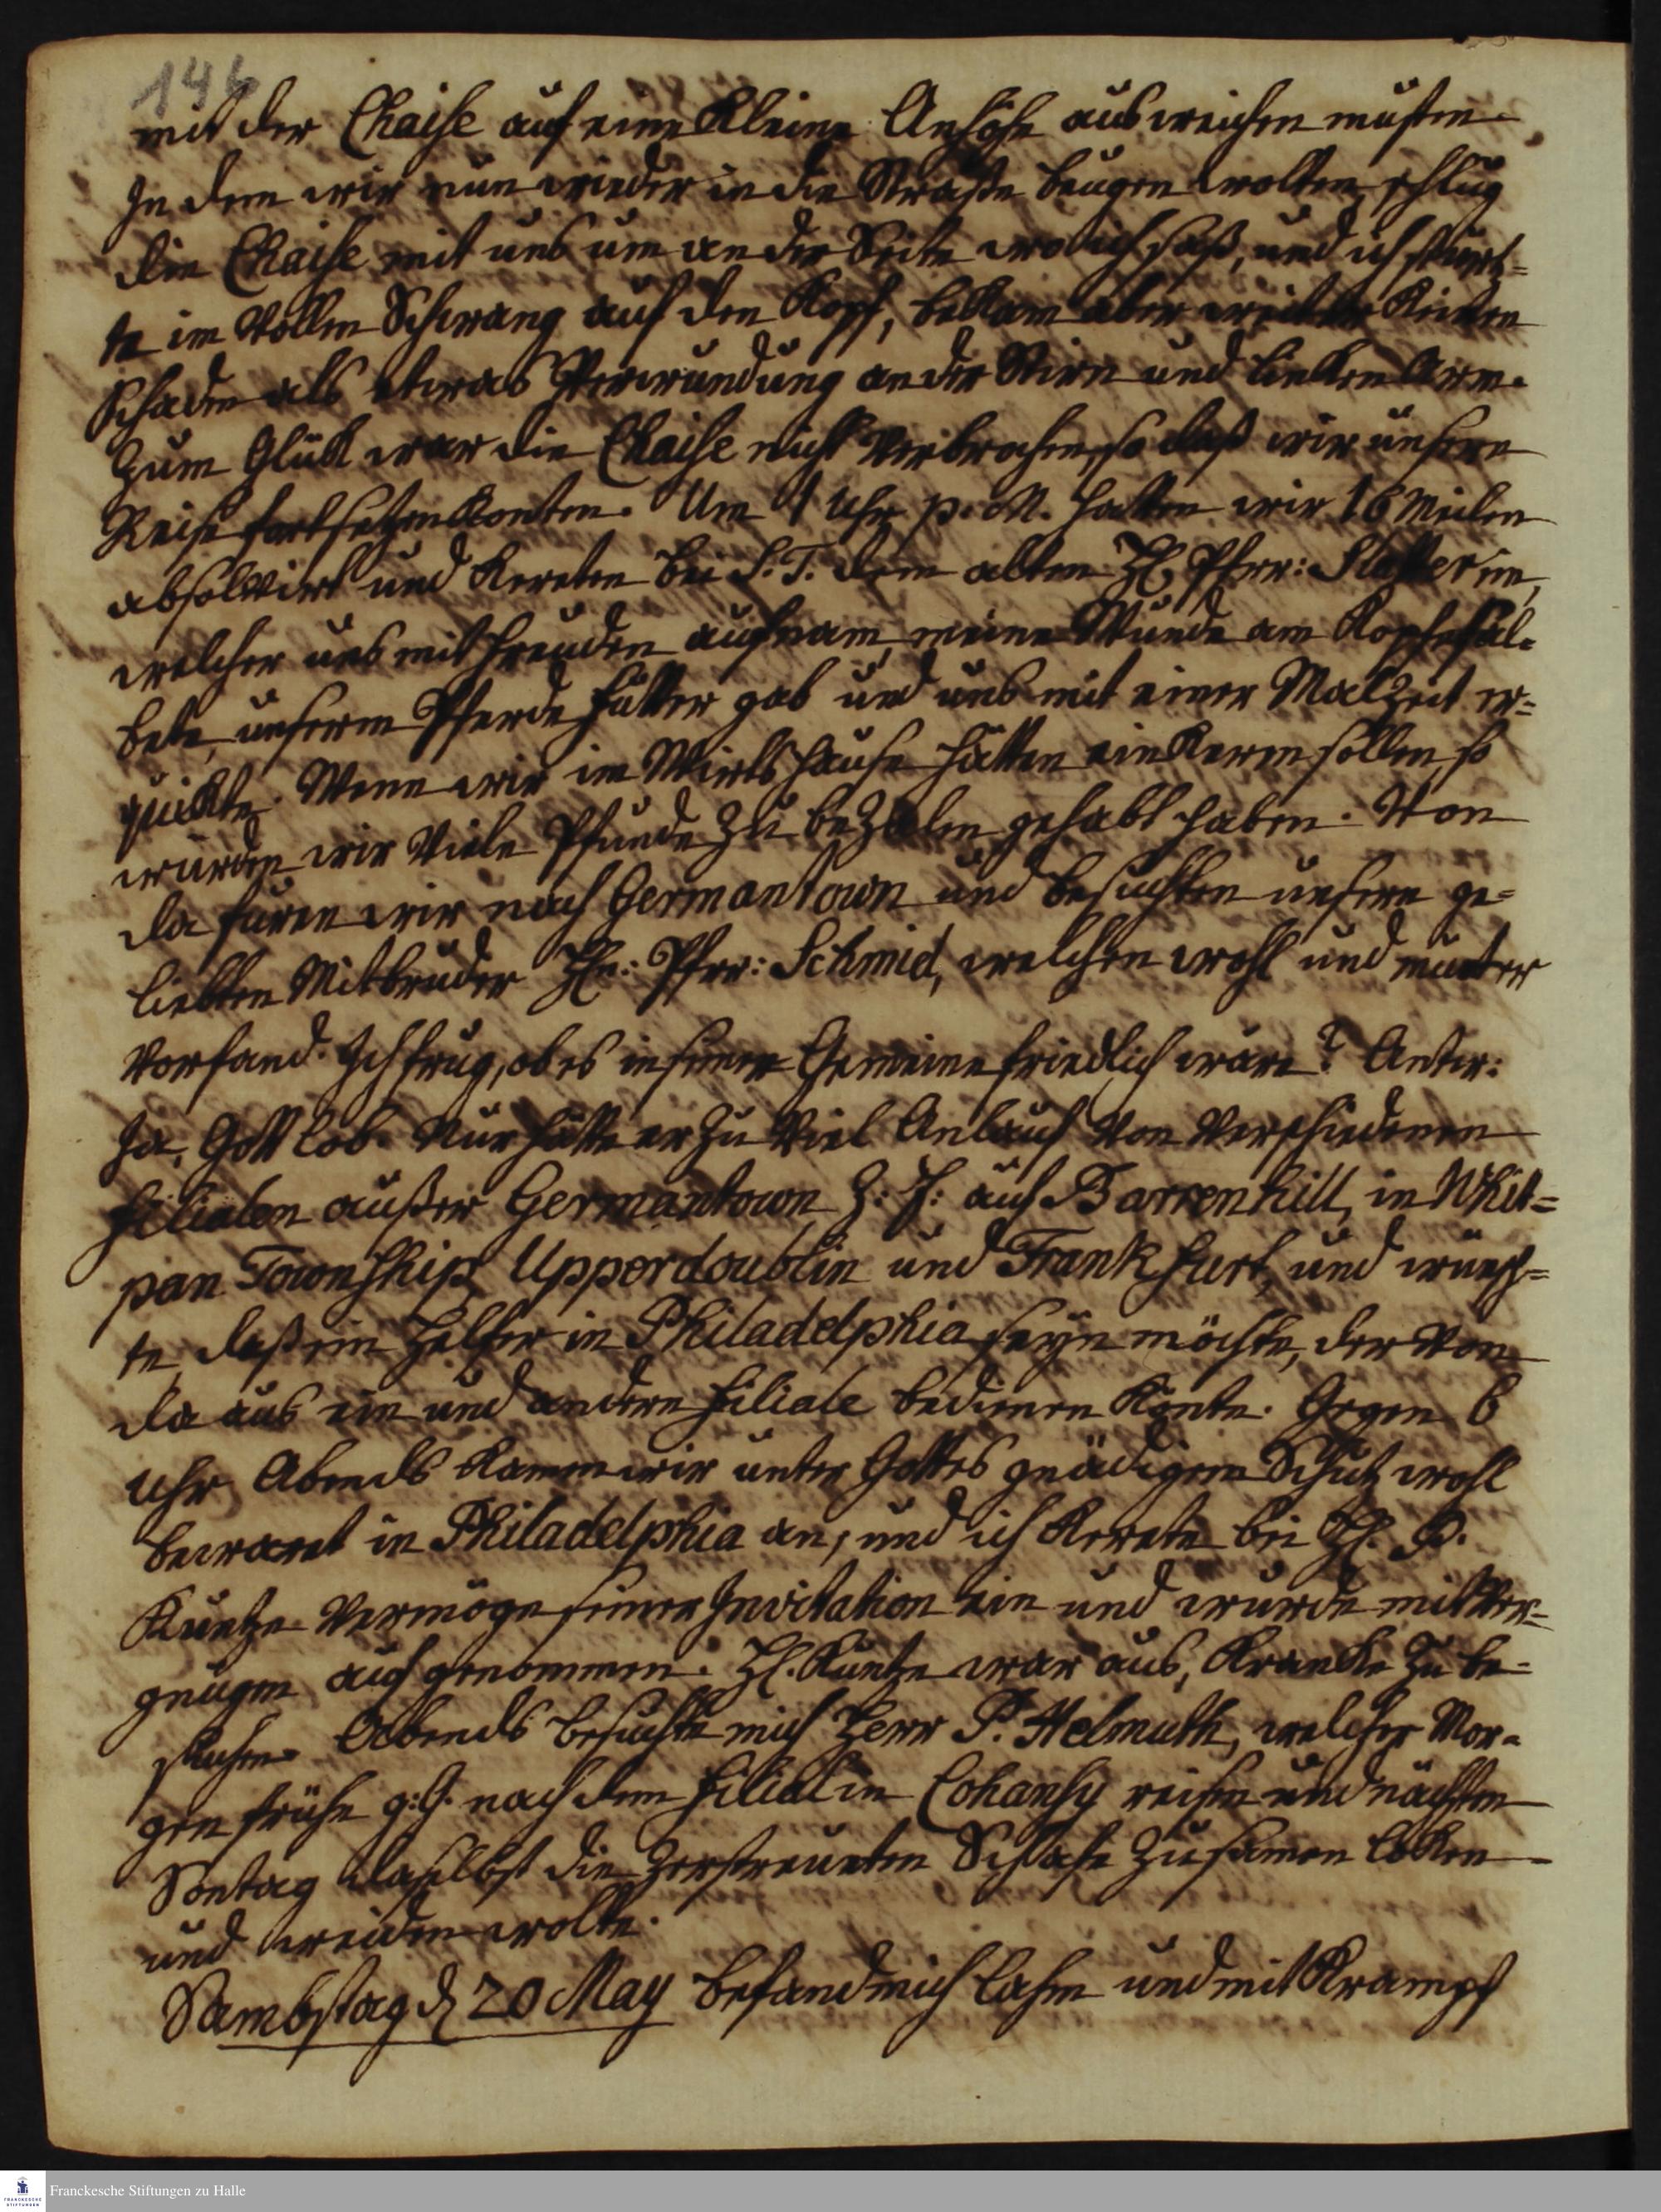 146
mit der Chaise auf eine kleine Anhöhe ausweichen musten.
In dem wir nun wieder in die Straße beugen wolten, schlug
die Chaise mit uns um an der Seite wo ich saß, und ich stürtz=
te im vollen Schwang auf den Kopf, bekam aber weiter keinen
Schaden als etwas Verwundung an der Stirn und lincken Arm.
Zum Glück war die Chaise nicht verbrochen, so daß wir unsere
Reise fortsetzen konten. Um 1 Uhr p. M. hatten wir 16 Meilen
absolvirt und kereten bei S. T. dem alten H. Pfarr: Slatter ein,
welcher uns mit Freuden aufnam, meine Wunde am Kopfe sal=
bete, unserm Pferde Futter gab und uns mit einer Malzeit er=
quickte. Wenn wir im Wirtshause hätten einkeren sollen, so
würden wir viele Pfunde zu bezalen gehabt haben. Von
da furen wir nach Germantown und besuchten unsern ge=
liebten Mitbruder Hn: Pfarr: Schmid, welchen wohl und munter
vorfand. Ich frug, ob es in seiner Gemeine friedlich wäre? Antw:
Ja, Gott Lob. Nur hätte er zu viel Anlauf von verschiedenen
Filialen außer Germantown, z. E. auf Barrenhill, in Whit=
pan Township, Upperdoublin und Frankfurt, und wünsch=
te, daß ein Helfer in Philadelphia seyn möchte, der von
da aus ein und andere Filiale bedienen könte. Gegen 6
Uhr Abends kamen wir unter Gottes gnädigem Schutz wohl
bewaret in Philadelphia an, und ich kerete bei H. P.
Kuntze vermöge seiner Invitation ein und wurde mit Ver=
gnügen aufgenommen. H. Kuntze war aus, Krancke zu be=
suchen. Abends besuchte mich Herr P. Helmuth, welcher Mor=
gen frühe g. G. nach dem Filial in Cohansy reisen und nächsten
Sontag daselbst die zerstreueten Schafe zusamen locken
und weiden wolte.
Sambstag d 20 May befand mich lahm und mit Krampf
Franckesche Stiftungen zu Halle